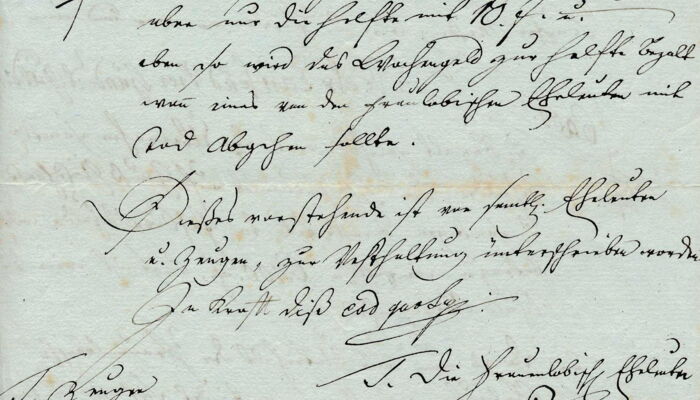 aber nur die helfte mit 10. f. u.
eben so wird das Wochengeld zur helfte bezalt
wan eines von den Fraulobischen Eheleuten mit
Tod Abgehen sollte.
Dießes vorstehende ist von samtl: Eheleuten
u. Zeugen, zur Vesthaltung unterschrieben worden
In Kraft diß eod
T. Zeugen
T. Die Frauenlobisch Eheleuten